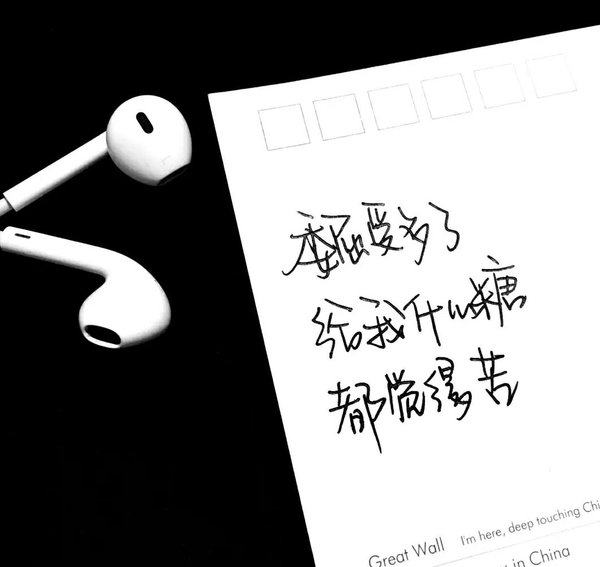 委屈受多了
给我什么糖
都觉得苦
Great Wall I'm here, deep touching Chi
in China